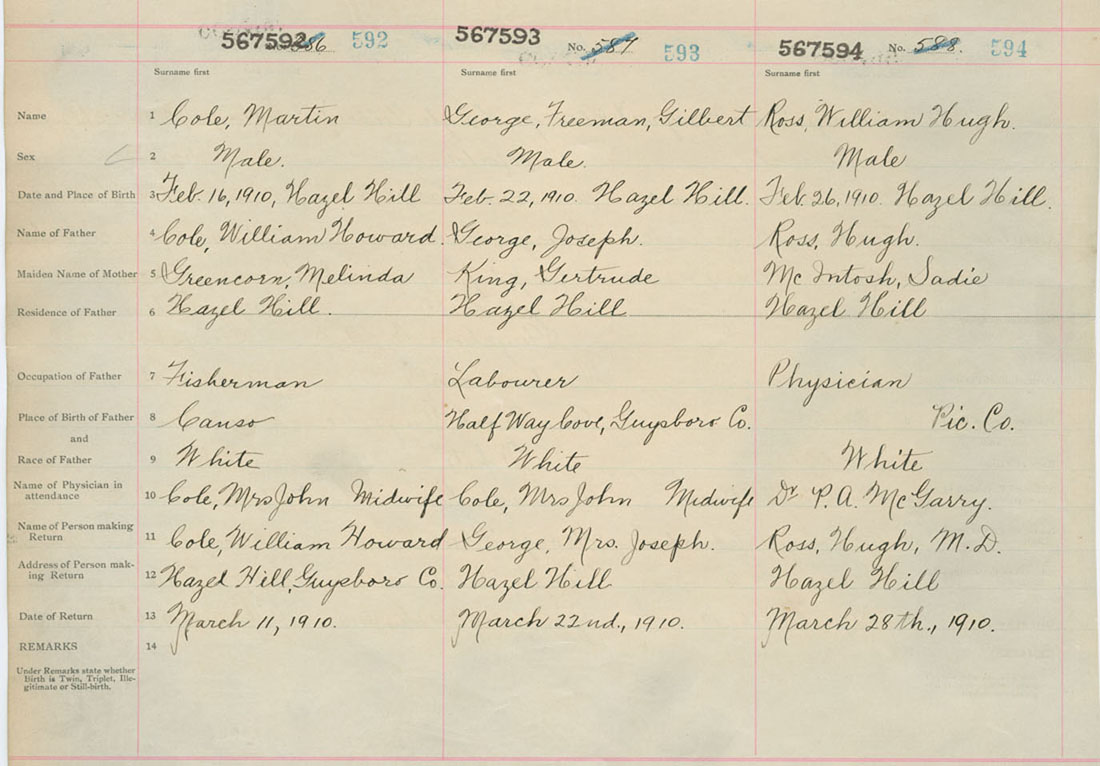 567592 586 592 567593 No. 587 593 567594 No. 588. 594
Surname first Surname first Surname first
Name 1 Cole, Martin George, Freeman, Gilbert Ross, William Hugh.
Sex 2 Male. Male. Male
Date and Place of Birth 3 Feb. 16, 1910, Hazel Hill Feb. 22, 1910. Hazel Hill. Feb. 26, 1910. Hazel Hill.
Name of Father 4 Cole, William Howard. George, Joseph. Ross, Hugh.
Maiden Name of Mother 5 Greencorn, Melinda King, Gertrude Mc Intosh, Sadie
Residence of Father 6 Hazel Hill. Hazel Hill Hazel Hill
Occupation of Father 7 Fisherman Labourer Physician
Place of Birth of Father 8 Canso Half Way Cove, Guysboro Co. Pic. Co.
and
Race of Father 9 White White White
Name of Physician in
attendance 10 Cole, Mrs John Midwife Cole, Mrs John Midwife Dr P. A. McGarry.
Name of Person making
Return 11 Cole, William Howard George, Mrs. Joseph. Ross, Hugh, M.D.
Address of Person mak-
ing Return 12 Hazel Hill, Guysboro Co. Hazel Hill Hazel Hill
Date of Return 13 March 11, 1910. March 22nd., 1910. March 28th., 1910.
REMARKS 14
Under Remarks state whether
Birth is Twin, Triplet, Ille-
gitimate or Still-birth.